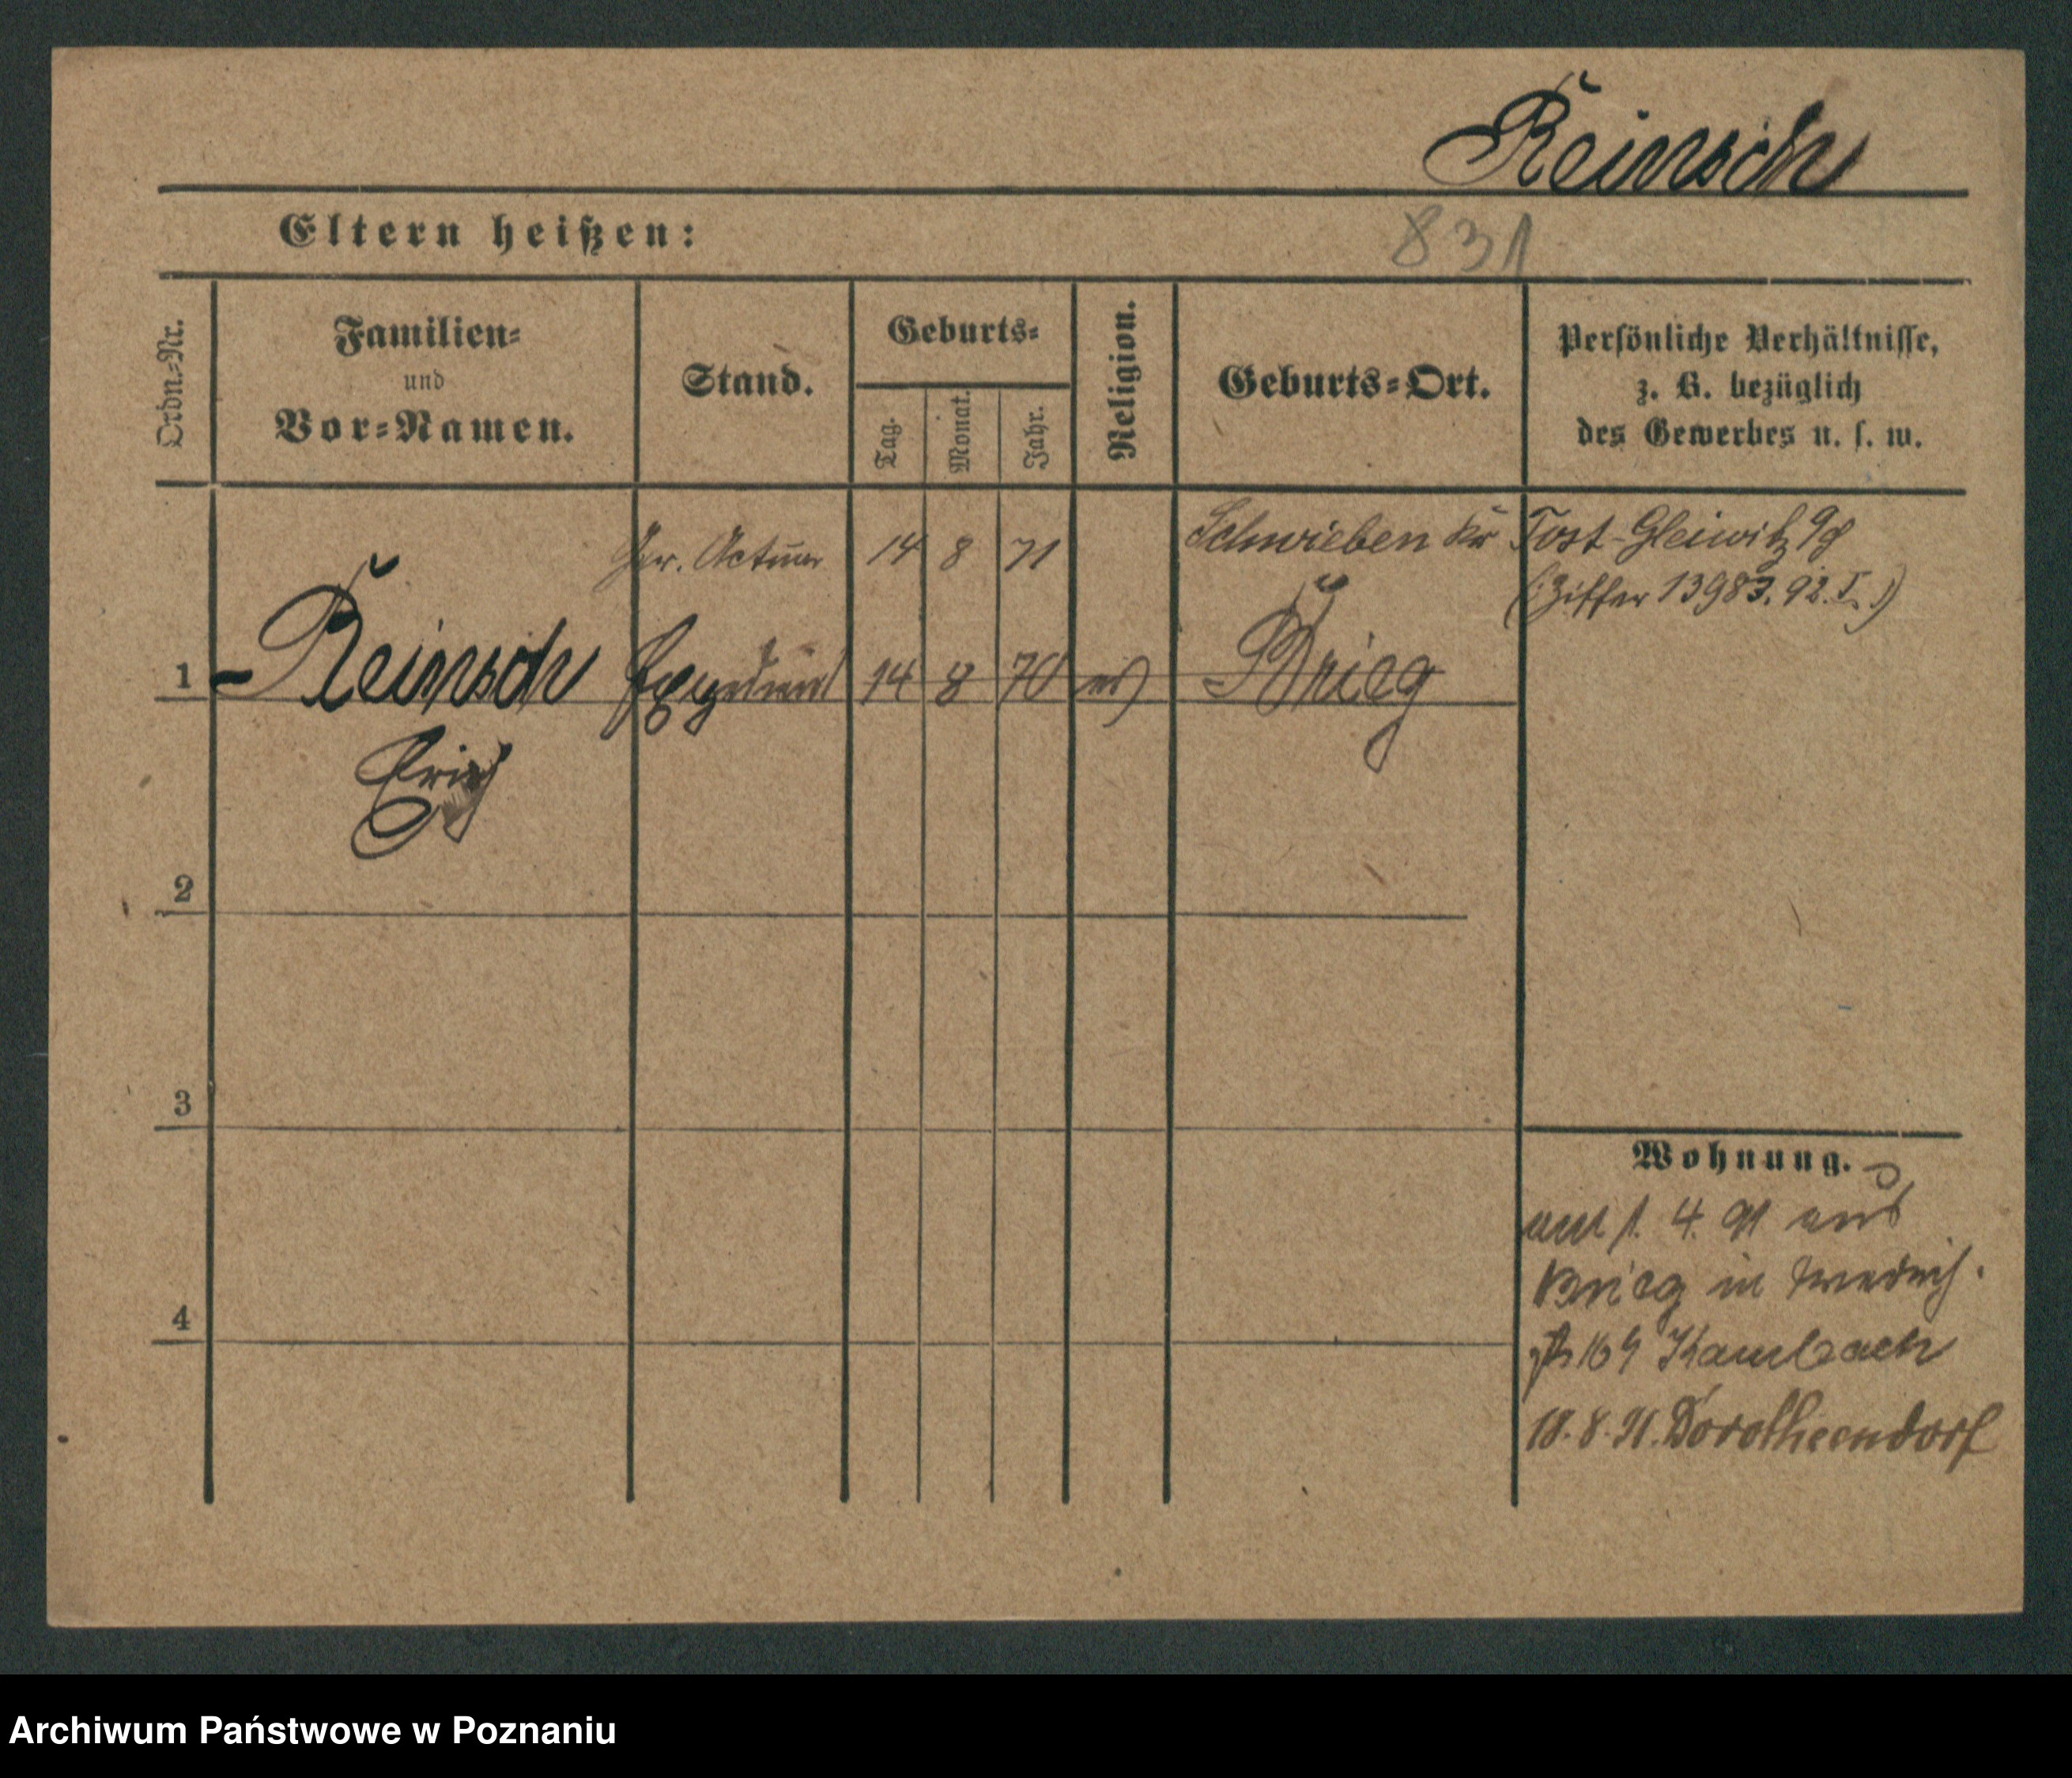 Reinsch
Eltern heißen:
831
Ordn.-Nr.
Familien-
und
Vor-Namen.
Stand.
Geburts-
Tag.
Monat.
Jahr.
Religion.
Geburts-Ort.
Persönliche Verhältnisse,
z. B. bezüglich
des Gewerbes u. s. w.
Ger. Actuar 14 8 71 Schwieben Kr Tost-Gleiwitz
(: Ziffer 13983. 92. I. :)
1 Reinsch 14 8 70 Brieg
Erich
2
3
4
Wohnung.
1. 4. 91 aus
Brieg in
Kambach
18. 8. 91. Dorotheendorf
Archiwum Państwowe w Poznaniu